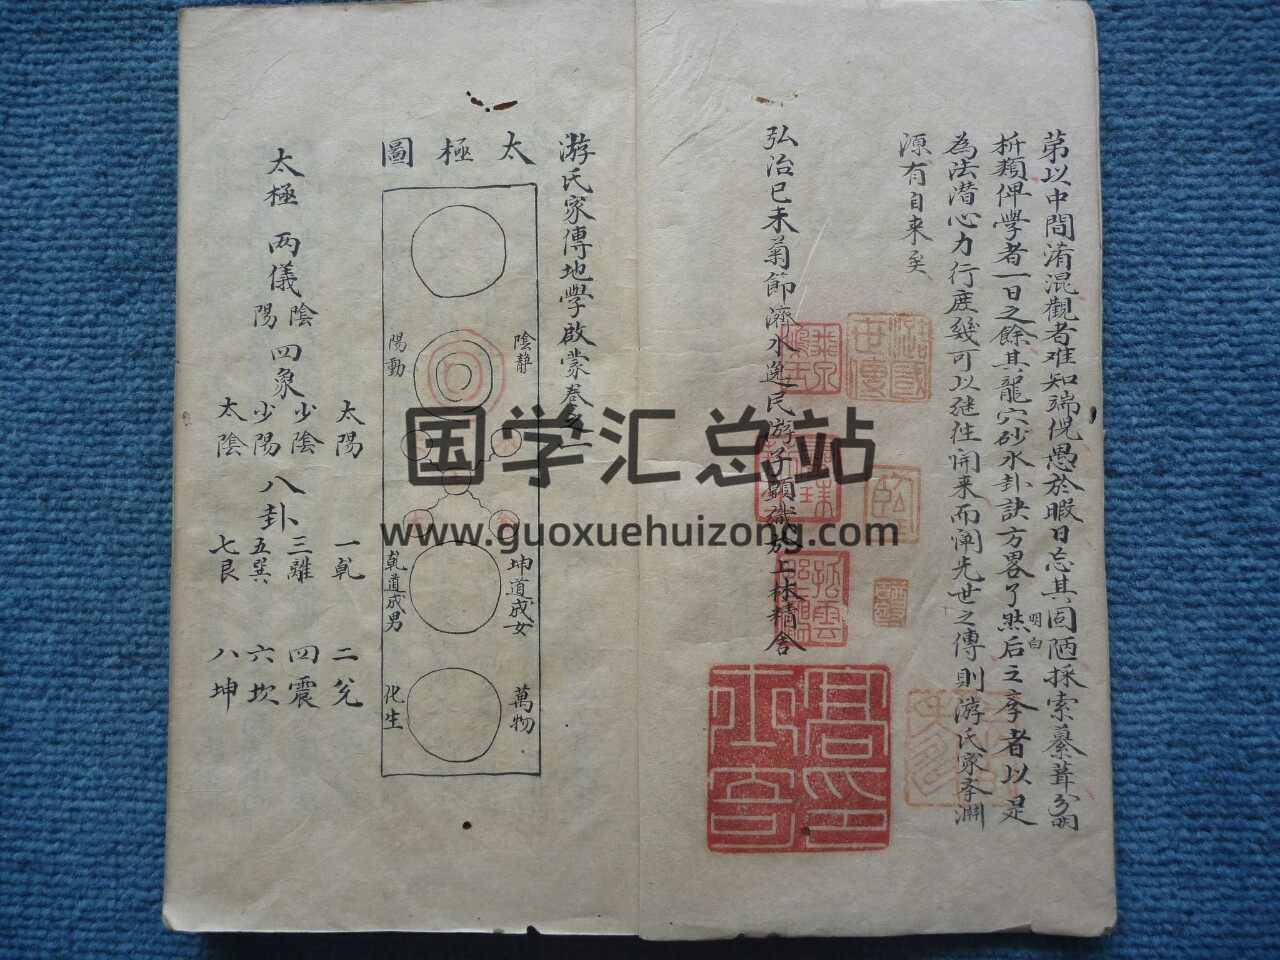 第以中間淆混觀者难知端倪愚於暇日忘其固陋採索纂葺分朙
析類俾學者一日之餘其龍穴砂水卦訣方畧了然后之孝者以是
明白
為法潜心力行庶幾可以继往開来而闡先世之傳則游氏家孝淵
源有自来矣
弘治己未菊節濟水逸民游子顕識於上林精舍
游氏家傳地學啟蒙卷之一
太極圖
陰靜
陽動
坤道成女
乾道成男
萬物
化生
太極 两儀 陰陽 四象 太陽 少陰 少陽 太陰 八卦 一乾 二兌 三離 四震 五巽 六坎 七艮 八坤
国学汇总站
www.guoxuehuizong.com